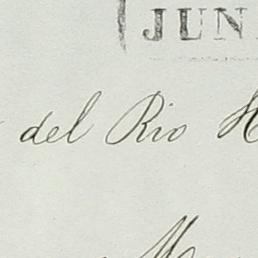 JUN
del Rio